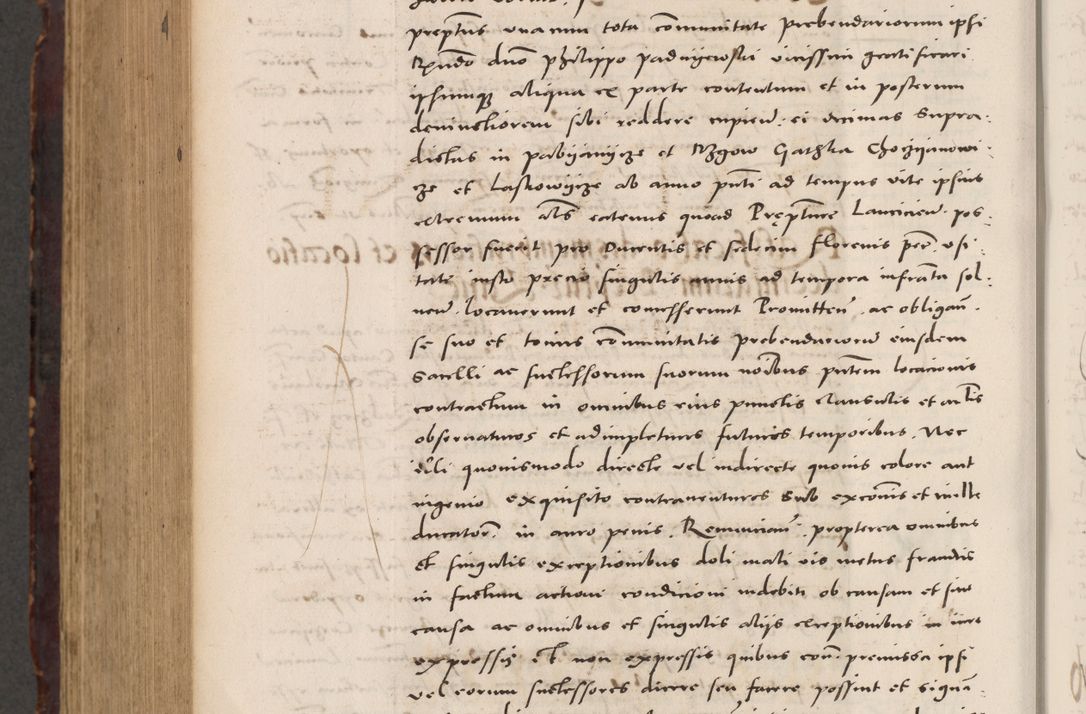 prepti̅us una cum tota co̅mmunitate prebendariorum ipsi
R̅p̅n̅do d̅no philippo padnyewski vicissim gratificari
ipsumq̃ aliqua ex parte contentum et in posterum
deninctiorem sibi reddere cupien̄. ei decimas supra:
dictas in pabijanijcze et Rzgow Gathka Chocijanowi:
cze et Laskowijcze ab anno pn̅ti ad tempus vite ipsius
extremum al̅s eatenus quoad Pręp̅ture Lancicien̄. pos:
sessor fuerit pro Ducentis et sedecim florenis pec̅. usi:
tate iusto precio singulis annis ad tempora infra̅ta sol:
ven̄. locaverunt et concesserunt Promitten̄. ac obligan̄.
se suo et tocius co̅mmunitatis prebendariorum̄ eiusdem
Sacelli ac successorum suorum no̅ibus pn̅tem locacionis
contractum in omnibus eius punctis clausulis et artl̅is
observaturos et adimpleturos futuris temporibus. Nec
illi quovismodo directe vel indirecte quovis colore aut
ingenio exquisito contraventuros sub exco̅nis et mille
ducator̄. in auro penis. Renuncian̄. propterea omnibus
et singulis exceptionibus doli mali vis metus fraudis
in factum actioni condicioni indebiti ob causam et sine
causa ac omnibus et singulis alijs exceptionibus in iure
expressis et non expressis quibus con̄. premissa ipsi
vel eorum successores dicere seu facere possint et siquan̄: